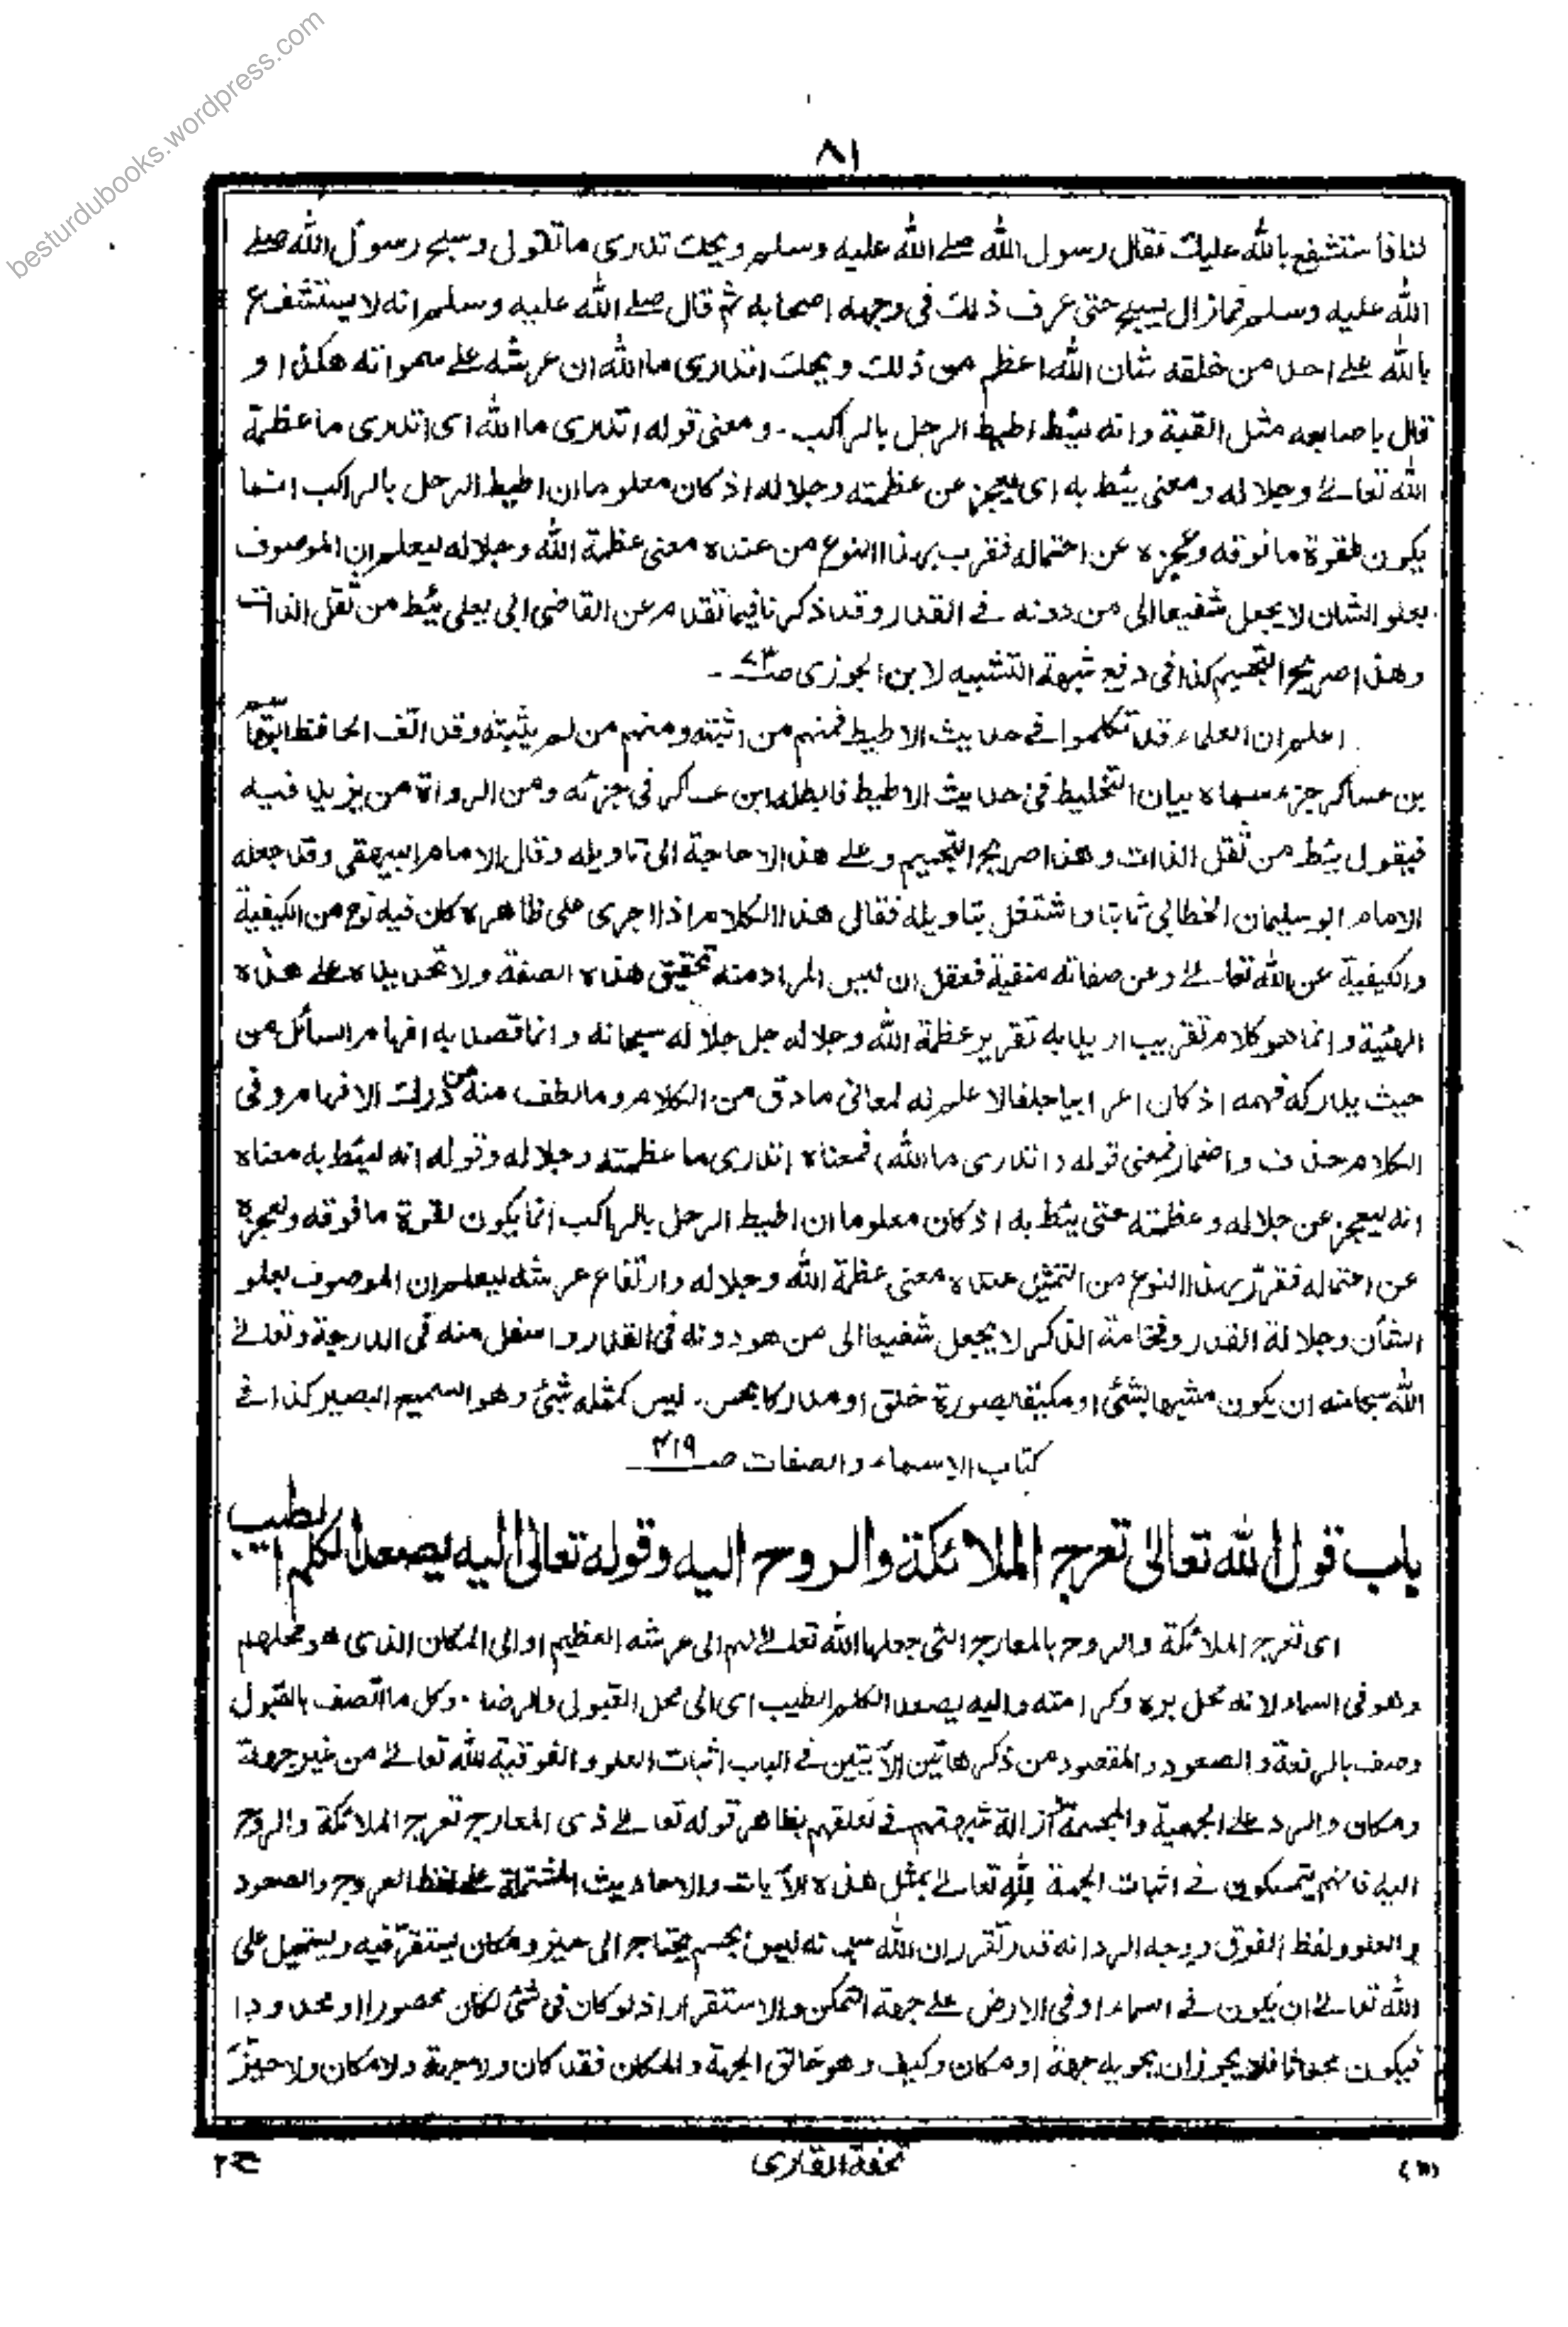 besturdubooks.wordpress.com
٨١
لنا فاستشفع بالله عليك فقال رسول الله صلے الله عليه وسلم ويحك تدرى ما تقول وسبح رسول الله صلے
الله عليه وسلم فمازال يسبح حتى عرف ذلك فى وجهه اصحابه ثم قال صلے الله عليه وسلم انه لا يستشفع
بالله علے احد من خلقه شان الله اعظم من ذلك ويحك اتدرى ما الله ان عرشه علے سمواته هكذا و
قال باصابعه مثل القبة وانه ليئط اطيط الرحل بالراكب - ومعنى قوله اتدرى ما الله اى اتدرى ما عظمة
الله تعالے وجلاله ومعنى يئط به اى يعجز عن عظمته وجلاله اذ كان معلوما ان اطيط الرحل بالراكب انما
يكون لقوة ما فوقه وعجزه عن احتماله فقرب بهذا النوع من عنده معنى عظمة الله وجلاله ليعلم ان الموصوف
بعلو الشان لا يجعل شفيعا الى من دونه فے القدر وقد ذكرنا فيما تقدم عن القاضى ابى يعلى يئط من ثقل الذات
وهذا صريح التجسيم كذا فى دفع شبهة التشبيه لابن الجوزى صـ -
اعلم ان العلماء قد تكلموا فے حديث الاطيط فمنهم من اثبته ومنهم من لم يثبته وقد الّف الحافظ
بن عساكر جزء سماه بيان التخليط فى حديث الاطيط فابطله ابن عساكر فى جزئه ومن الرواة من يزيد فيه
فيقول يئط من ثقل الذات وهذا صريح التجسيم وعلے هذا لا حاجة الى تاويله وقال الامام البيهقى وقد جعله
الامام ابو سليمان الخطابى ثابتا واشتغل بتاويله فقال هذا الكلام اذا اجرى على ظاهره كان فيه نوع من الكيفية
والكيفية عن الله تعالے وعن صفاته منفية فعقل ان ليس المراد منه تحقيق هذه الصفة ولا تحديده علے هذه
الهيئة وانما هو كلام تقريب اريد به تقرير عظمة الله وجلاله جل جلاله سبحانه وانما قصد به افهام السائل من
حيث يدركه فهمه اذ كان اعرابيا جلفا لا علم له لمعانى ما دق من الكلام وما لطف منه عن درك الافهام وفى
الكلام حذف واضمار فمعنى قوله (اتدرى ما الله) فمعناه اتدرى ما عظمته وجلاله وقوله انه ليئط به معناه
انه ليعجز عن جلاله وعظمته حتى يئط به اذ كان معلوما ان اطيط الرحل بالراكب انما يكون لقوة ما فوقه ولعجزه
عن احتماله فقرّر بهذا النوع من التمثيل عنده معنى عظمة الله وجلاله وارتفاع عرشه ليعلم ان الموصوف بعلو
الشأن وجلالة القدر وفخامة الذكر لا يجعل شفيعا الى من هو دونه فى القدر واسفل منه فى الدرجة وتعالے
الله سبحانه ان يكون مشبها بشئ او مكيفا بصورة خلق او مدركا بحس . ليس كمثله شئ وهو السميع البصير كذا فے
كتاب الاسماء والصفات صـ ٤١٩
باب قول الله تعالىٰ تعرج الملائكة والروح اليه وقوله تعالىٰ اليه يصعد الكلم الطيب
اى تعرج الملائكة والروح بالمعارج التى جعلها الله تعالے لهم الى عرشه العظيم او الى المكان الذى هو محلهم
وهو فى السماء لانه محل بره وكرامته واليه يصعد الكلم الطيب اى الى محل القبول والرضا . وكل ما اتصف بالقبول
وصف بالرفعة والصعود والمقصود من ذكر هاتين الآيتين فے الباب اثبات العلو والفوقية لله تعالے من غير جهة
ومكان والرد علے الجهمية والمجسمة وازالة شبهتهم فے تعلقهم بظاهر قوله تعالے ذى المعارج تعرج الملائكة والروح
اليه فانهم يتمسكون فے اثبات الجهة لله تعالے بمثل هذه الآيات والاحاديث المشتملة علے لفظ العروج والصعود
والعلو ولفظ الفوق ووجه الرد انه قد تقرر ان الله سبحانه ليس بجسم يحتاج الى حيز ومكان يستقرّ فيه ويستحيل على
الله تعالے ان يكون فے السماء او فى الارض علے جهة التمكن والاستقرار اذ لو كان فى شئ لكان محصورا او محدودا
فيكون محدثا فلا يجوز ان يحويه جهة او مكان وكيف وهو خالق الجهة والمكان فقد كان ولا جهة ولا مكان ولا حيّز
(١١)
تحفة القارى
ج ٢